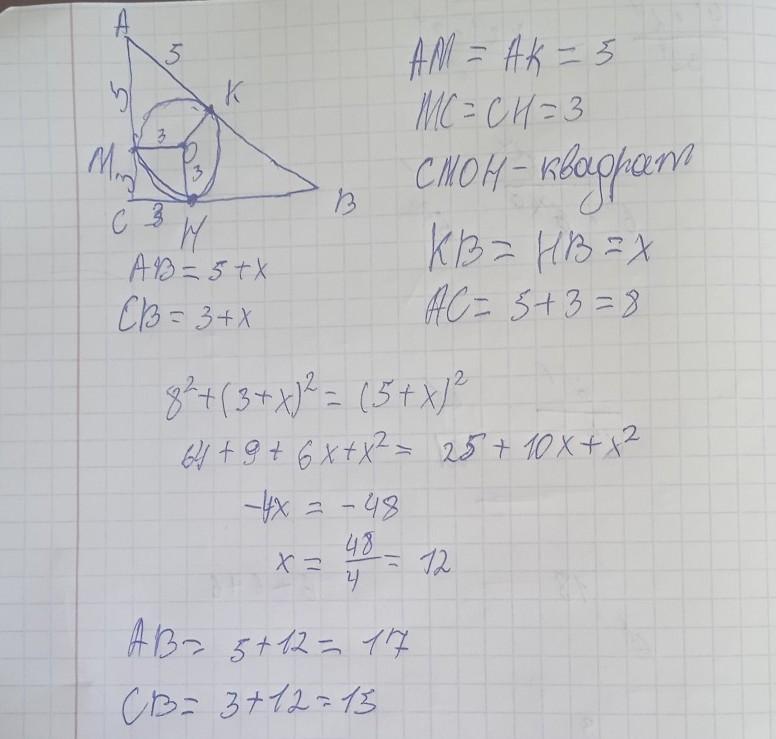 A
5
5
K
M
3
O
3
3
C
3
H
B
AM = AK = 5
MC = CH = 3
CMOH - квадрат
KB = HB = x
AC = 5+3 = 8
AB = 5+x
CB = 3+x
8² + (3+x)² = (5+x)²
64 + 9 + 6x + x² = 25 + 10x + x²
-4x = -48
x = 48/4 = 12
AB = 5+12 = 17
CB = 3+12 = 15